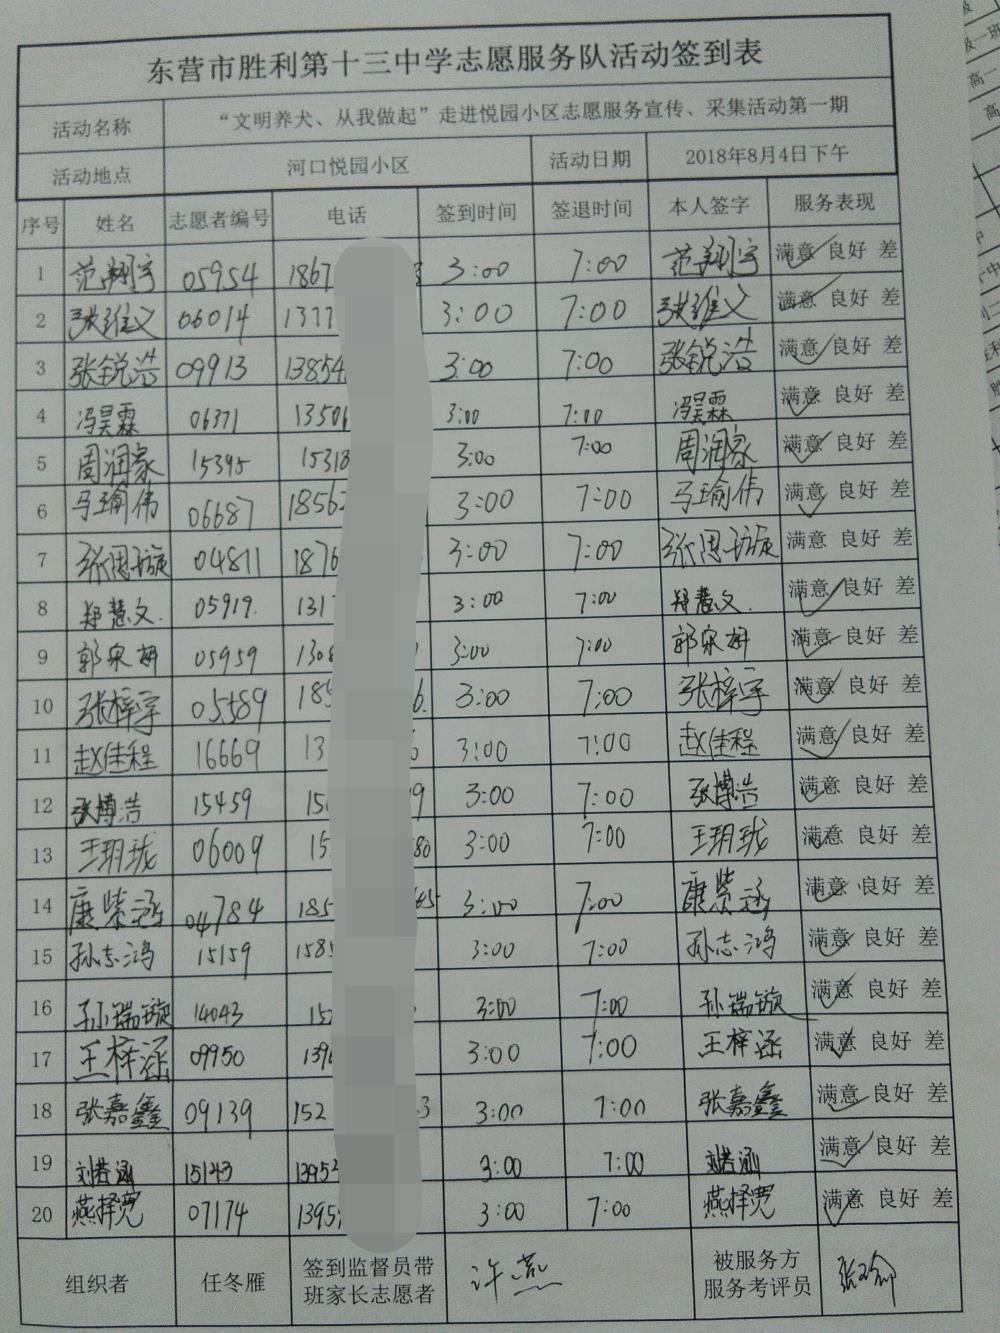 东营市胜利第十三中学志愿服务队活动签到表
活动名称 “文明养犬、从我做起”走进悦园小区志愿服务宣传、采集活动第一期
活动地点 河口悦园小区 活动日期 2018年8月4日下午
序号 姓名 志愿者编号 电话 签到时间 签退时间 本人签字 服务表现
1 范翔宇 05954 1867 3:00 7:00 范翔宇 满意 良好 差
2 张维义 06014 1377 3:00 7:00 张维义 满意 良好 差
3 张锐浩 09913 13854 3:00 7:00 张锐浩 满意 良好 差
4 冯昊霖 06371 13506 3:00 7:00 冯昊霖 满意 良好 差
5 周润家 15395 15318 3:00 7:00 周润家 满意 良好 差
6 马瑜伟 06687 1856 3:00 7:00 马瑜伟 满意 良好 差
7 张思璇 04811 1876 3:00 7:00 张思璇 满意 良好 差
8 郑慧文. 05919. 131 3:00 7:00 郑慧文. 满意 良好 差
9 郭泉妍 05959 130 3:00 7:00 郭泉妍 满意 良好 差
10 张梓宇 05589 185 6. 3:00 7:00 张梓宇 满意 良好 差
11 赵佳程 16669 13 3:00 7:00 赵佳程 满意 良好 差
12 张博浩 15459 15 9 3:00 7:00 张博浩 满意 良好 差
13 王玥珑 06009 15 80 3:00 7:00 王玥珑 满意 良好 差
14 康紫涵 04784 185 45 3:00 7:00 康紫涵 满意 良好 差
15 孙志鸿 15159 1585 3:00 7:00 孙志鸿 满意 良好 差
16 孙瑞璇 14043 15 3:00 7:00 孙瑞璇 满意 良好 差
17 王梓涵 09950 139 3:00 7:00 王梓涵 满意 良好 差
18 张嘉鑫 09139 152 3 3:00 7:00 张嘉鑫 满意 良好 差
19 刘若涵 15143 1395 3:00 7:00 刘若涵 满意 良好 差
20 燕择宽 07174 1395 3:00 7:00 燕择宽 满意 良好 差
组织者 任冬雁 签到监督员带 许燕 被服务方
班家长志愿者 服务考评员